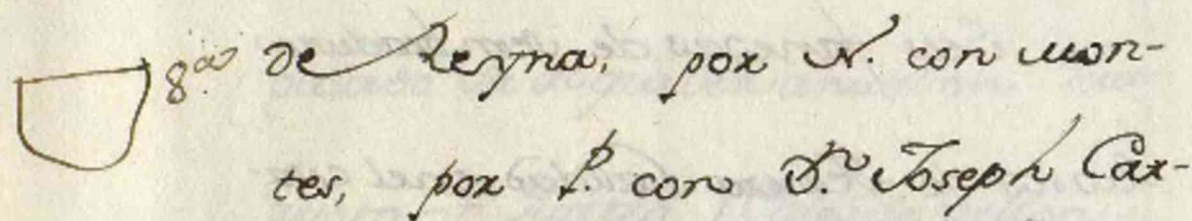 8.ª de Reyna, por N. con mon-
tes, por P. con D.n Joseph Car-